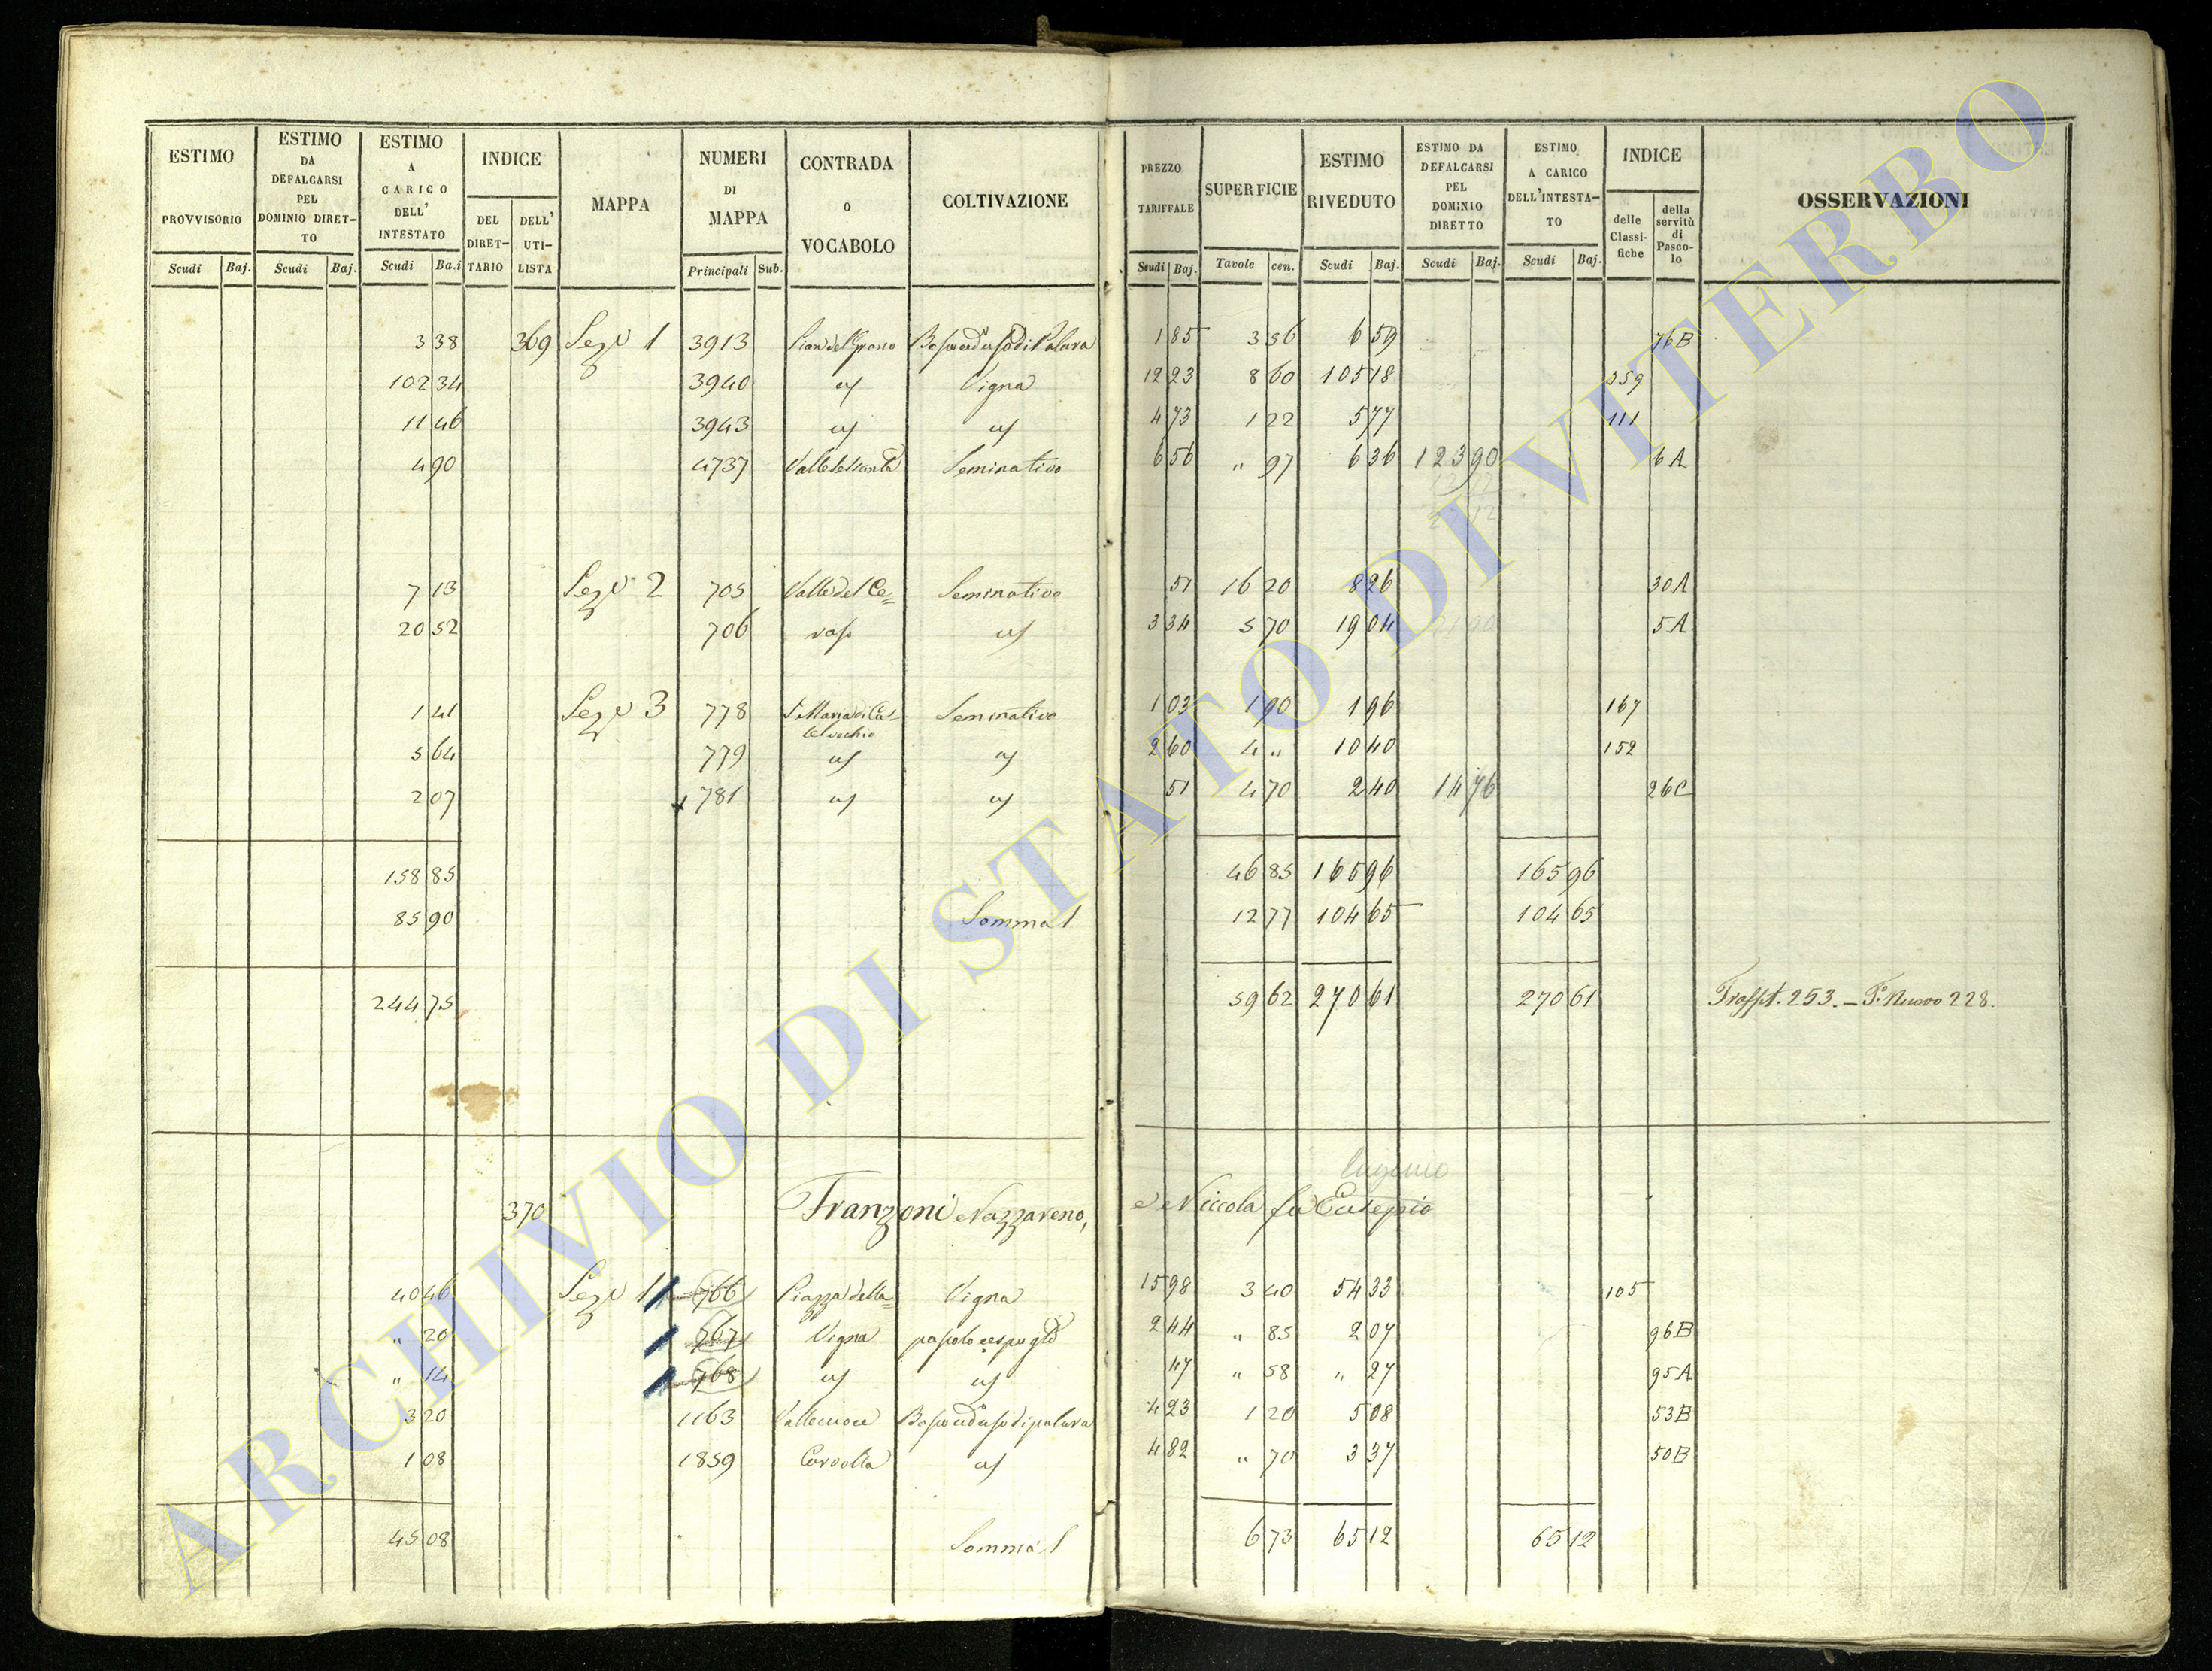 ESTIMO PROVVISORIO | ESTIMO DA DEFALCARSI PEL DOMINIO DIRET-TO | ESTIMO A CARICO DELL' INTESTATO | INDICE | MAPPA | NUMERI DI MAPPA | CONTRADA O VOCABOLO | COLTIVAZIONE | PREZZO TARIFFALE | SUPERFICIE | ESTIMO RIVEDUTO | ESTIMO DA DEFALCARSI PEL DOMINIO DIRETTO | ESTIMO A CARICO DELL'INTESTA-TO | INDICE | OSSERVAZIONI
DEL DIRET-TARIO | DELL' UTI-LISTA | delle Classi-fiche | della servitù di Pasco-lo
Scudi | Baj. | Scudi | Baj. | Scudi | Ba.i | Principali | Sub. | Scudi | Baj. | Tavole | cen. | Scudi | Baj. | Scudi | Baj. | Scudi | Baj.
3 38 369 Sez.e 1 3913 Pian del Grano 1 85 3 56 6 59 76B
102 34 3940 " Vigna 12 23 8 60 105 18 359
11 46 3943 " " 4 73 1 22 5 77 111
4 90 4737 Seminativo 6 56 " 97 6 36 123 90 6A
7 13 Sez.e 2 705 Valle del Ce= Seminativo 51 16 20 8 26 30A
20 52 706 vaso " 3 34 5 70 19 04 5A
1 41 Sez.e 3 778 S. Maria di Ca- Seminativo 1 03 1 90 1 96 167
stelvechio
5 64 779 " " 2 60 4 " 10 40 152
2 07 781 " " 51 4 70 2 40 14 76 26C
158 85 46 85 165 96 165 96
85 90 Somma l 12 77 104 65 104 65
244 75 59 62 270 61 270 61 Trasspt. 253. – F.o Nuovo 228.
Eugenio
370 Franzoni Nazzareno, e Niccola fu Eusepio
40 46 Sez.e 1 766 Piazza della= Vigna 15 98 3 40 54 33 105
" 20 767 Vigna pascolo cespugl.o 2 44 " 85 2 07 96B
" 14 768 " " 47 " 58 " 27 95A
3 20 1163 Vallenoce Bosco ceduo sodi palara 4 23 1 20 5 08 53B
1 08 1859 " 4 82 " 70 3 37 50B
45 08 Somma l 6 73 65 12 65 12
ARCHIVIO DI STATO DI VITERBO